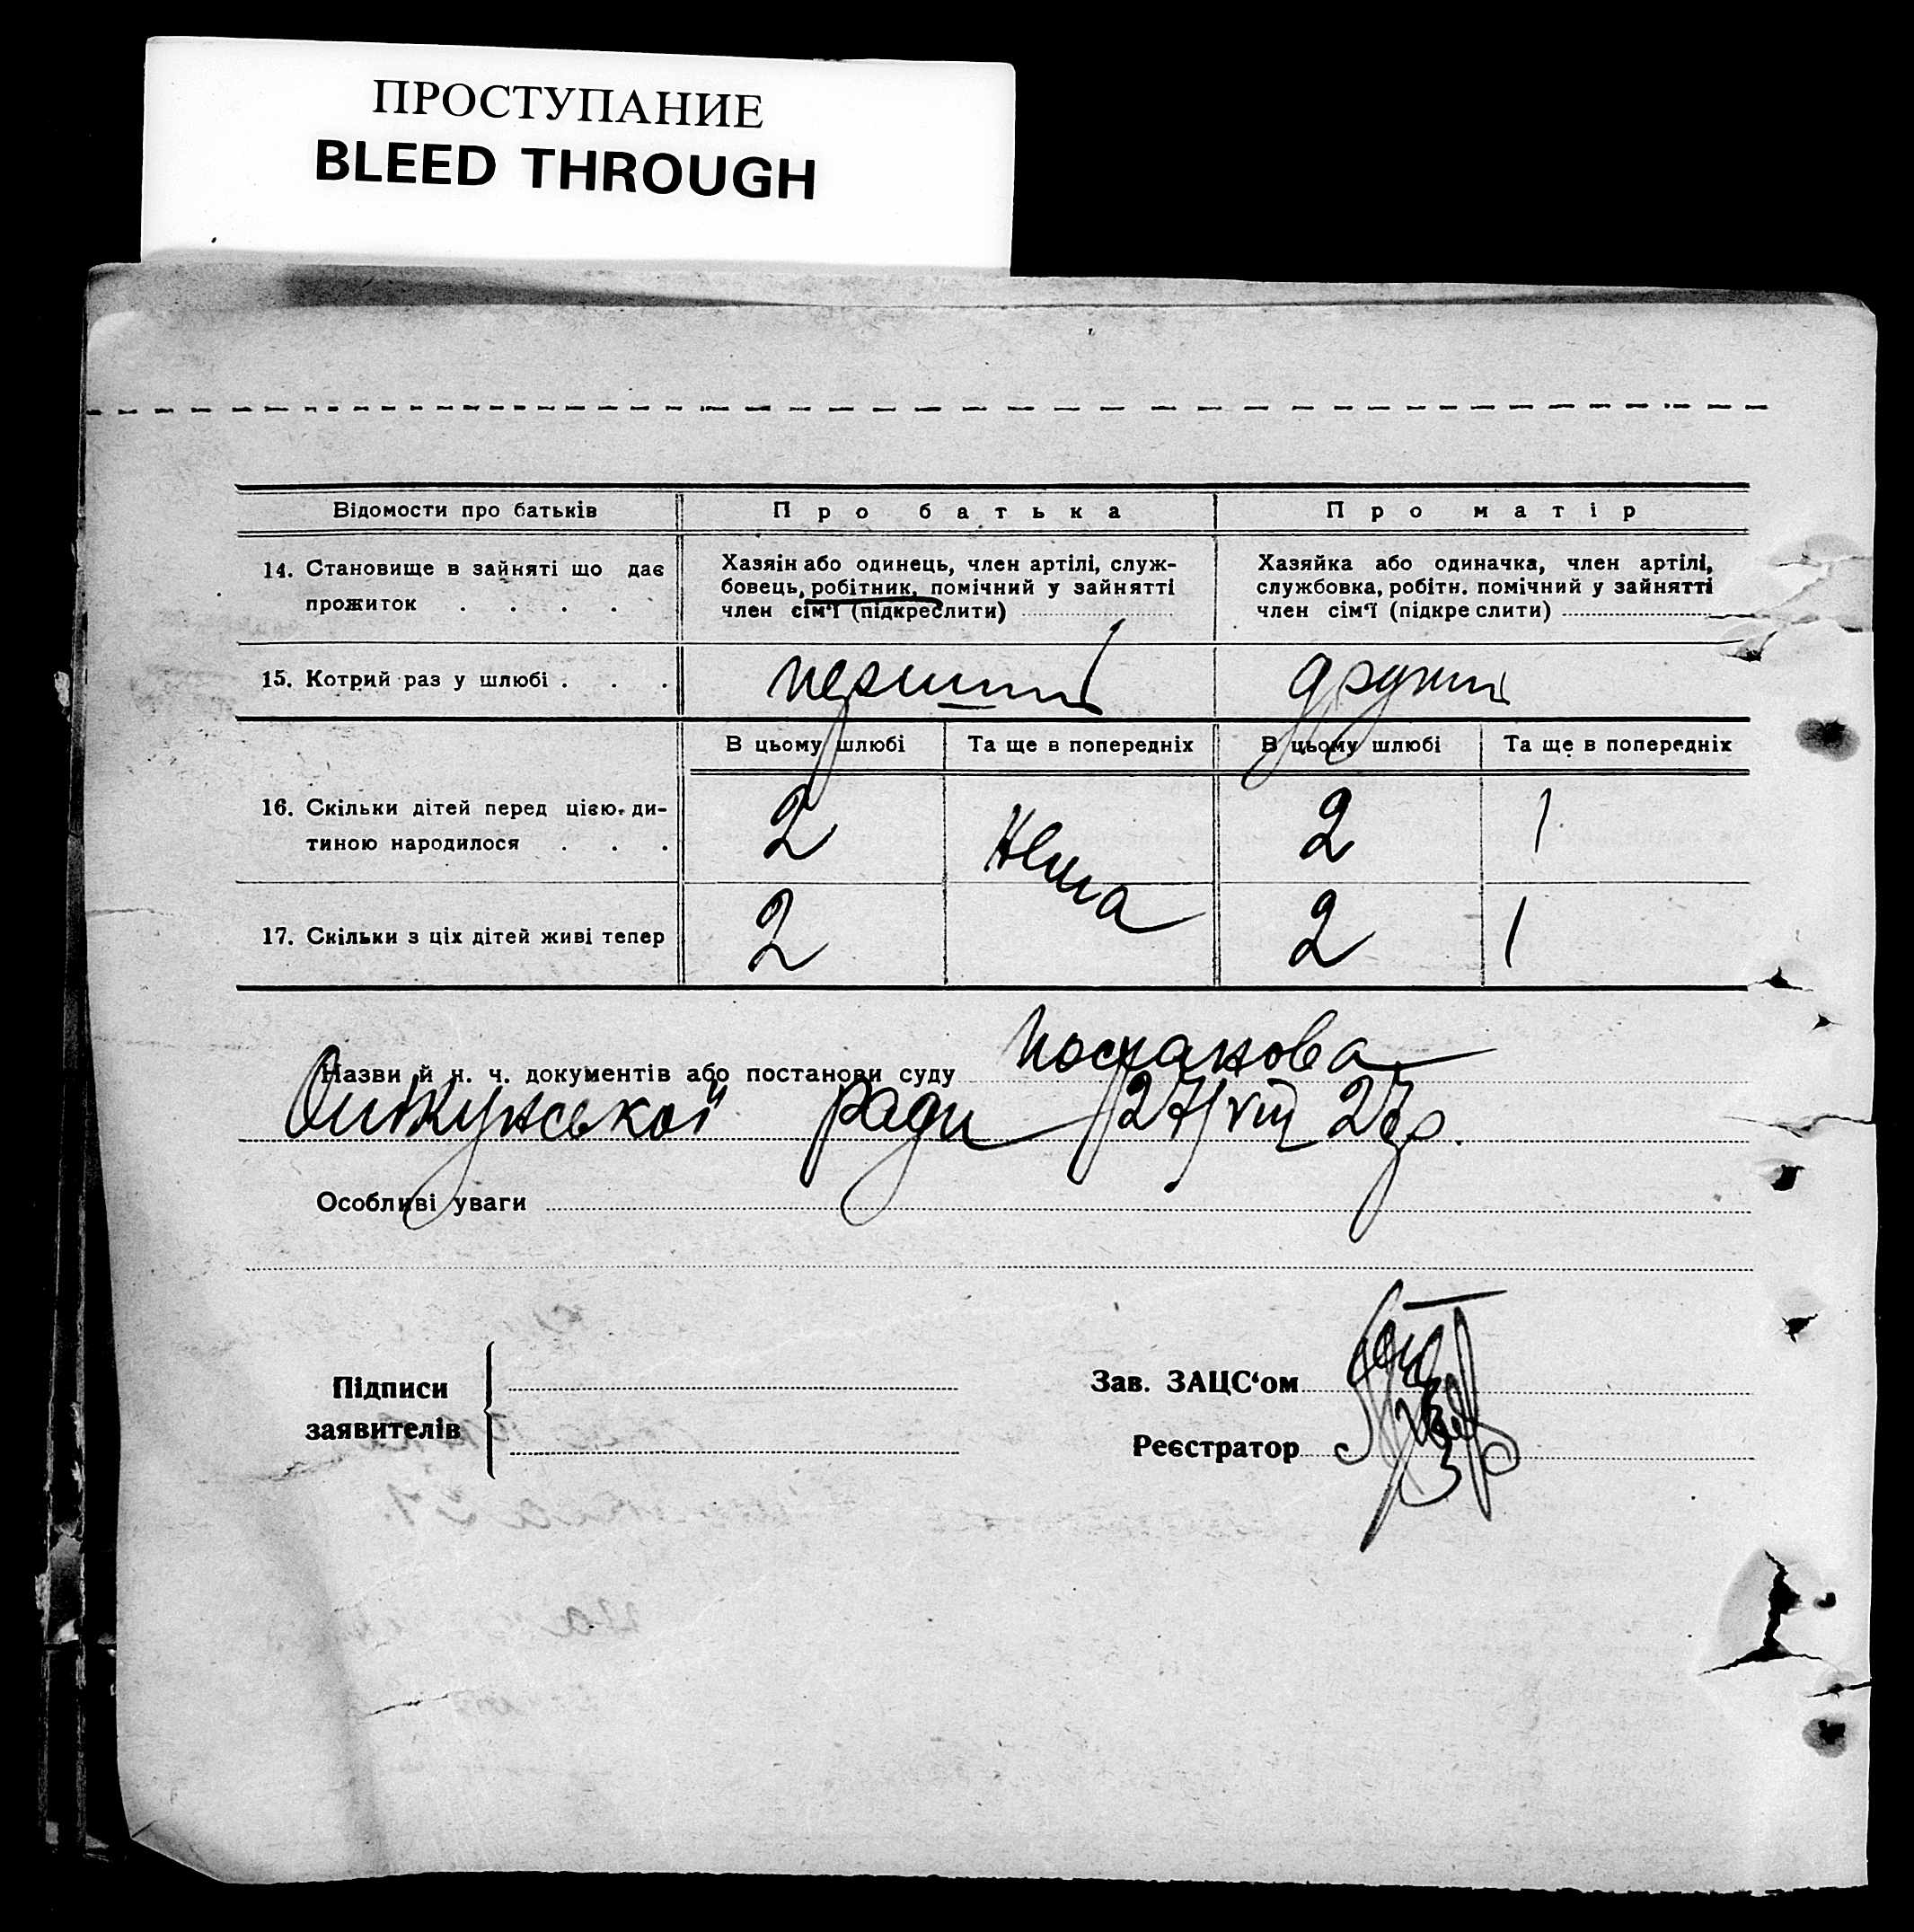 ПРОСТУПАНИЕ
BLEED THROUGH
Відомости про батьків
Про батька
Про матір
14. Становище в зайняті що дає
прожиток . . . .
Хазяін або одинець, член артілі, служ-
бовець, робітник, помічний у зайнятті
член сім'ї (підкреслити)
Хазяйка або одиначка, член артілі,
службовка, робітн. помічний у зайнятті
член сім'ї (підкре слити)
15. Котрий раз у шлюбі . . .
перший
другий
В цьому шлюбі
Та ще в попередніх
В цьому шлюбі
Та ще в попередніх
16. Скільки дітей перед цією ди-
тиною народилося . . .
2
Нема
2
1
17. Скільки з ціх дітей живі тепер
2
2
1
Назви й н. ч. документів або постанови суду Постанова
Опікунської ради 27/VIII 27 р.
Особливі уваги
Підписи
заявителів
Зав. ЗАЦС'ом
Реєстратор